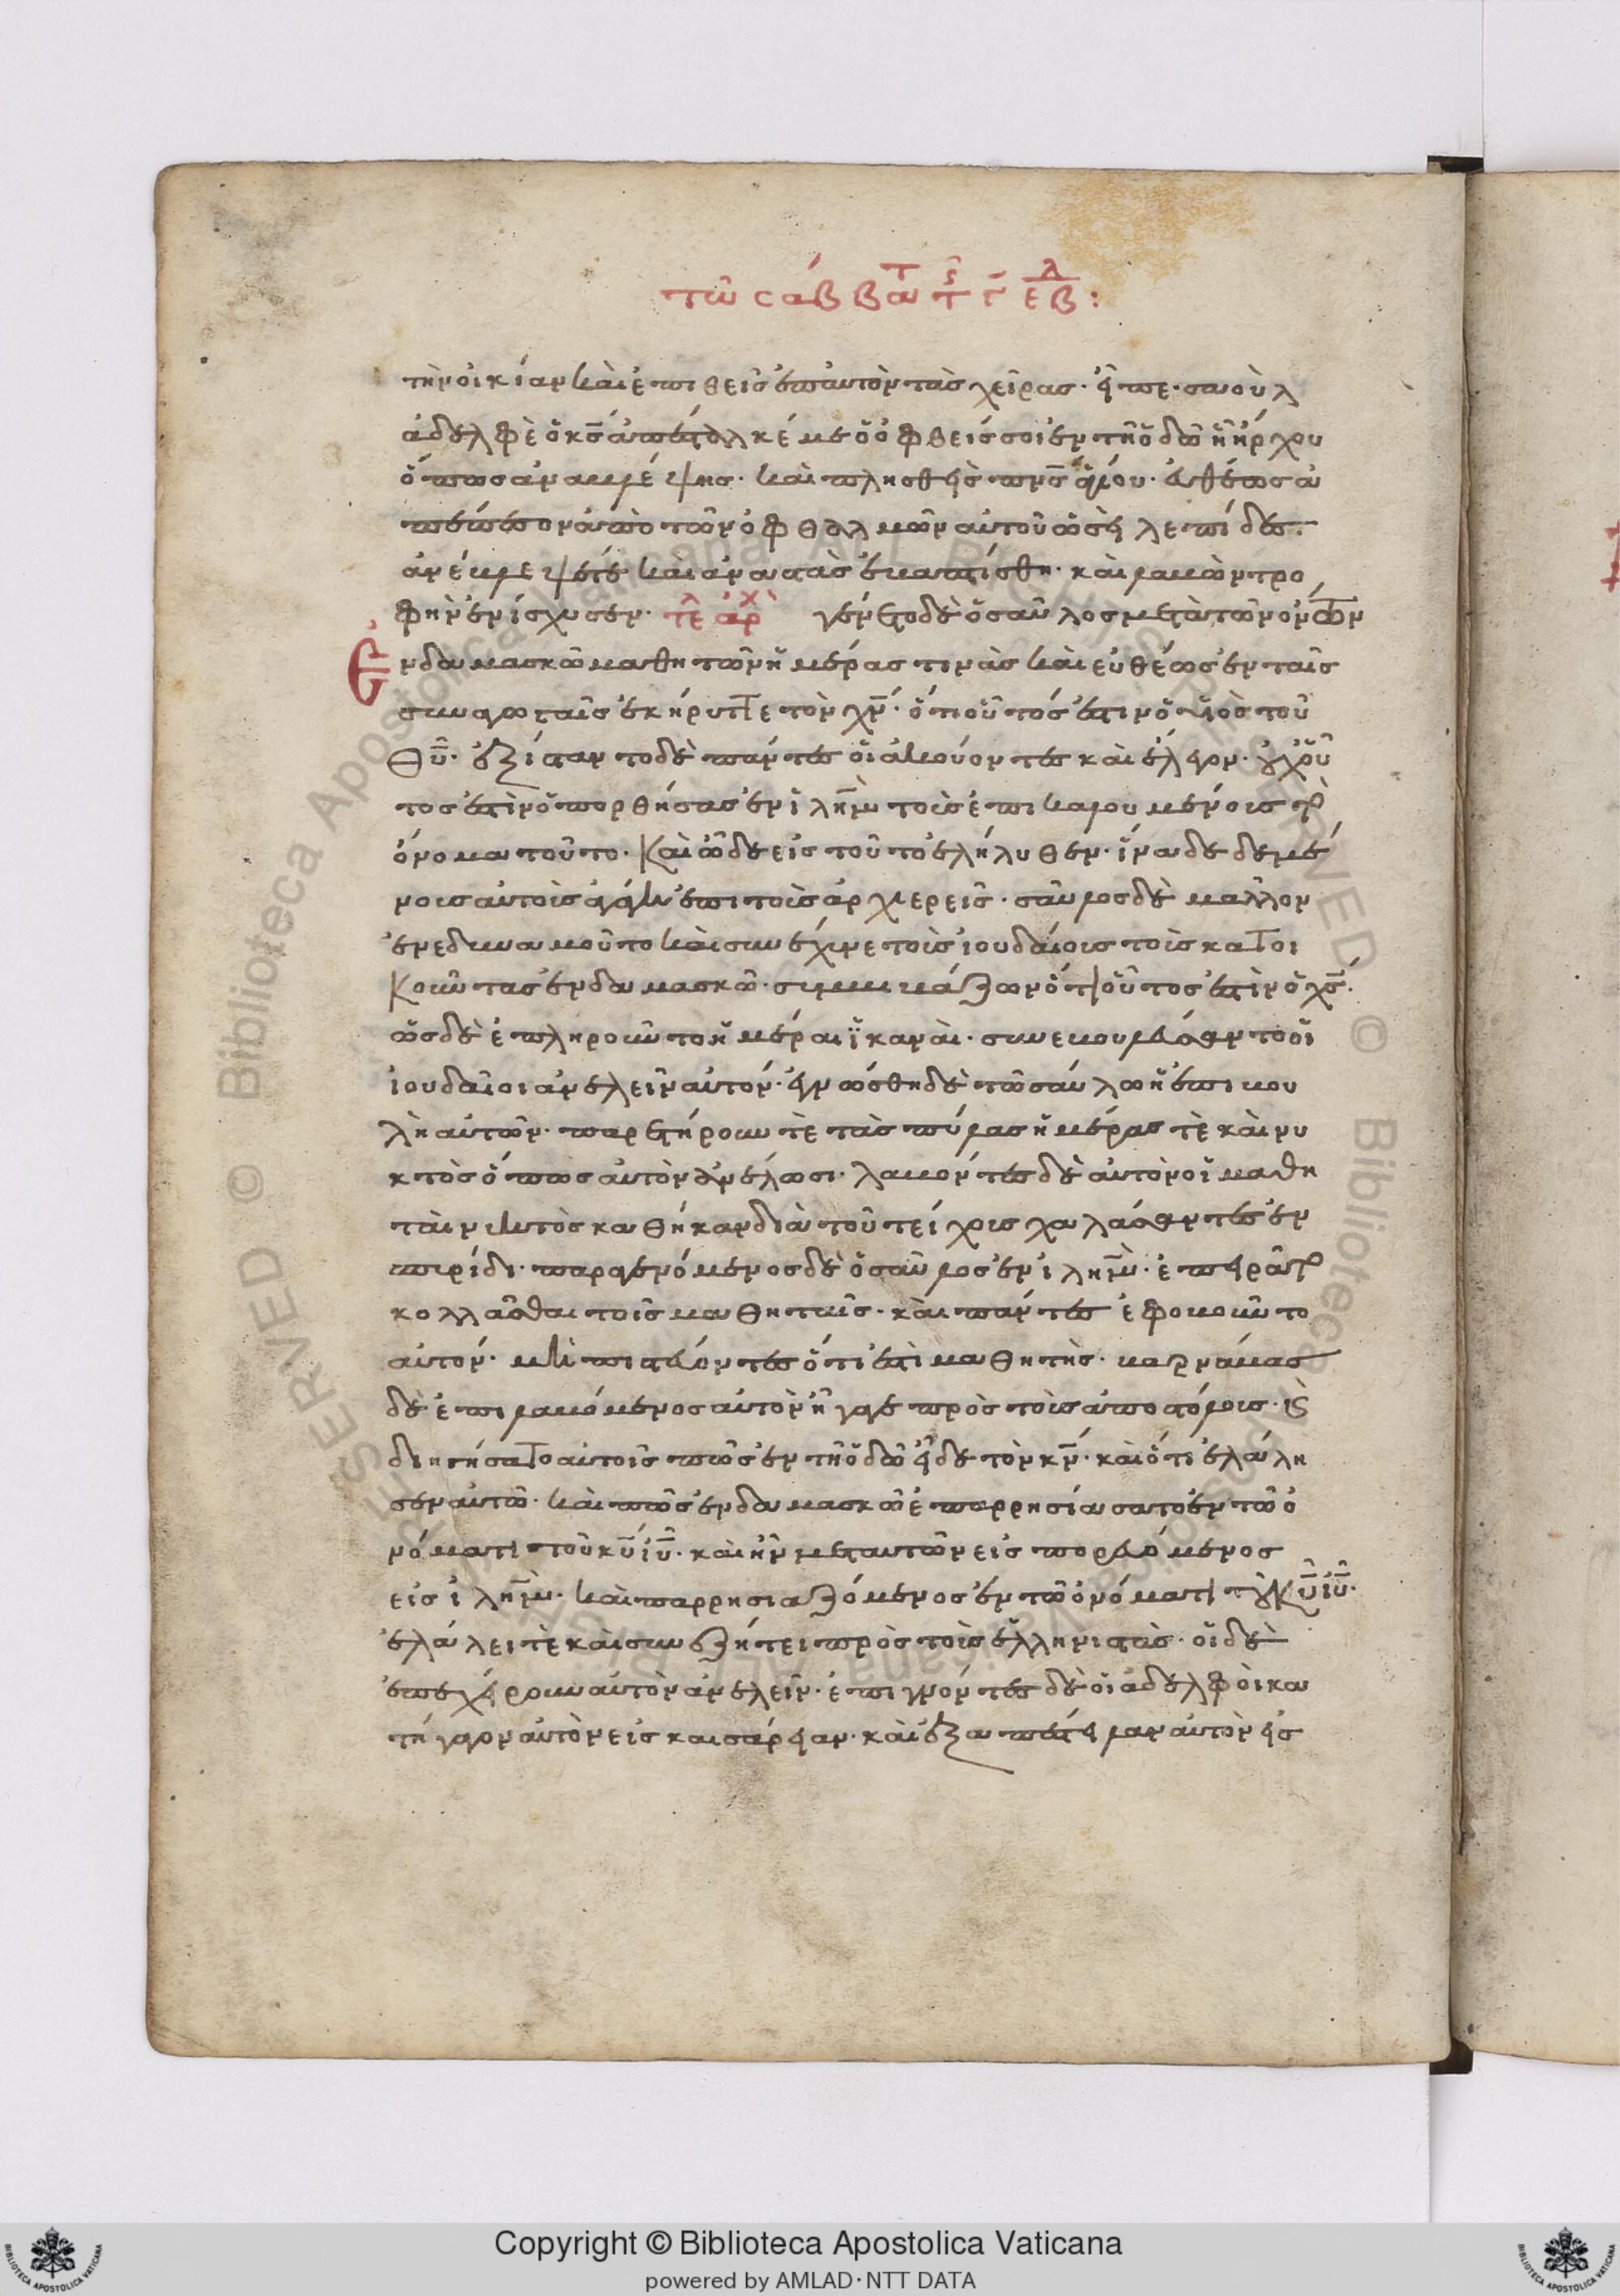 τῶ σαββάτ τῆς γ ἑβ λ:
τὴν οἰκίαν καὶ ἐπιθεὶς ἐπ αὐτὸν τὰς χεῖρας· εἶπε· σαοὺλ
ἀδελφὲ ὁ κς ἀπέσταλκέ με ὁ ὀφθείς σοι ἐν τῆ ὁδῶ ἧ ἤρχου
ὅπως ἀναβλέψης· καὶ πλησθεὶς πνς ἁγίου· εὐθέως ἀ
πέπεσον ἀπὸ τῶν ὀφθαλμῶν αὐτοῦ ὡσεὶ λεπίδες·
ἀνέβλεψέ τε καὶ ἀναστὰς ἐβαπτίσθη· καὶ λαβὼν τρο
φὴν ἐνίσχυσεν· τε λ ἀρχ γένετο δὲ ὁ σαῦλος μετὰ τῶν ὄντων
Ε ν δαμασκῶ μαθητῶν ἡμέρας τινὰς καὶ εὐθέως ἐν ταῖς
συναγωγαῖς ἐκήρυττε τὸν χν· ὅτι οὗτός ἐστιν ὁ υἱὸς τοῦ
θυ· ἐξίσταντο δὲ πάντες οἱ ἀκούοντες καὶ ἔλεγον· οὐχ οὗ
τος ἐστὶν ὁ πορθήσας ἐν ἱλημ τοὺς ἐπικαλουμένους τὸ
ὄνομα τοῦτο· καὶ ὧδε εἰς τοῦτο ἐλήλυθεν· ἵνα δεδεμέ
νους αὐτοὺς ἀγάγη ἐπὶ τοὺς ἀρχιερεῖς· σαῦλος δὲ μᾶλλον
ἐνεδυναμοῦτο καὶ συνέχυνε τοὺς ἰουδαίους τοὺς κατοι
κοῦντας ἐν δαμασκῶ· συμβιβάζων ὅτι οὗτος ἐστὶν ὁ χς·
ὡς δὲ ἐπληροῦντο ἡμέραι ἱκαναὶ· συνεβουλεύσαντο οἱ
ἰουδαῖοι ἀνελεῖν αὐτόν· ἐγνώσθη δὲ τῶ σαύλω ἡ ἐπιβου
λὴ αὐτῶν· παρετήρουν τὲ τὰς πύλας ἡμέρας τὲ καὶ νυ
κτὸς ὅπως αὐτὸν ἀνέλωσι· λαβόντες δὲ αὐτὸν οἱ μαθη
ταὶ νυκτὸς καθῆκαν διὰ τοῦ τείχους χαλάσαντες ἐν
σπυρίδι· παραγενόμενος δὲ ὁ σαῦλος ἐν ἱλημ· ἐπειρᾶτο
κολλᾶσθαι τοῖς μαθηταῖς· καὶ πάντες ἐφοβοῦντο
αὐτόν· μὴ πιστεύοντες ὅτι ἐστὶ μαθητής· βαρνάβας
δὲ ἐπιλαβόμενος αὐτὸν ἤγαγε πρὸς τοὺς ἀποστόλους· καὶ
διηγήσατο αὐτοῖς πῶς ἐν τῆ ὁδῶ εἶδε τὸν κν· καὶ ὅτι ἐλάλη
σεν αὐτῶ· καὶ πῶς ἐν δαμασκῶ ἐπαρρησιάσατο ἐν τῶ ὀ
νόματι τοῦ κυ ἰυ· καὶ ἦν μετ αὐτῶν εἰσπορευόμενος
εἰς ἱλημ· καὶ παρρησιαζόμενος ἐν τῶ ὀνόματι τοῦ κυ ἰυ·
ἐλάλει τὲ καὶ συνεζήτει πρὸς τοὺς ἑλληνιστάς· οἱ δὲ
ἐπεχείρουν αὐτὸν ἀνελεῖν· ἐπιγνόντες δὲ οἱ ἀδελφοὶ κα
τήγαγον αὐτὸν εἰς καισάρειαν· καὶ ἐξαπέστειλαν αὐτὸν εἰς
Copyright © Biblioteca Apostolica Vaticana
powered by AMLAD·NTT DATA